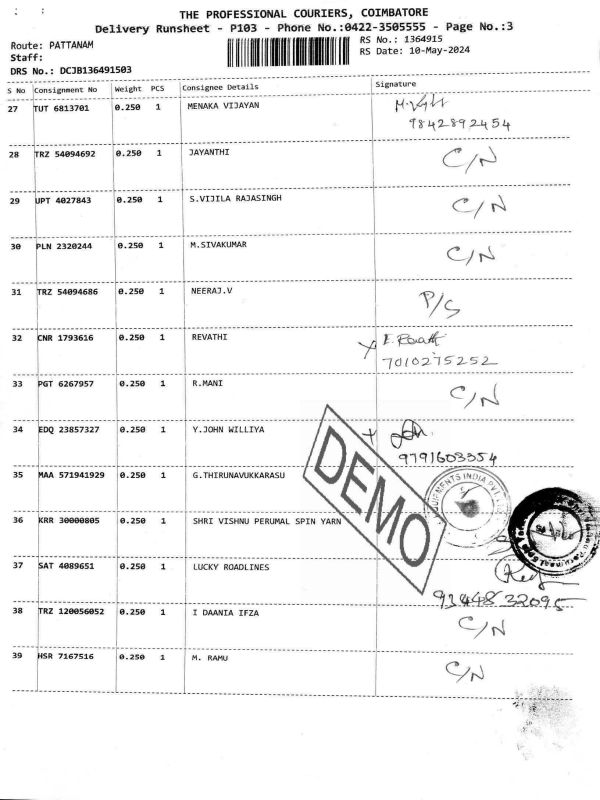 THE PROFESSIONAL COURIERS, COIMBATORE
Delivery Runsheet - P103 - Phone No.:0422-3505555 - Page No.:3
Route: PATTANAM
RS No.: 1364915
Staff:
RS Date: 10-May-2024
DRS No.: DCJB136491503
S No Consignment No Weight PCS Consignee Details Signature
27 TUT 6813701 0.250 1 MENAKA VIJAYAN
9842892454
28 TRZ 54094692 0.250 1 JAYANTHI C/N
29 UPT 4027843 0.250 1 S.VIJILA RAJASINGH C/N
30 PLN 2320244 0.250 1 M.SIVAKUMAR C/N
31 TRZ 54094686 0.250 1 NEERAJ.V P/S
32 CNR 1793616 0.250 1 REVATHI
7010275252
33 PGT 6267957 0.250 1 R.MANI C/N
34 EDQ 23857327 0.250 1 Y.JOHN WILLIYA
9791603554
35 MAA 571941929 0.250 1 G.THIRUNAVUKKARASU
36 KRR 30000805 0.250 1 SHRI VISHNU PERUMAL SPIN YARN
37 SAT 4089651 0.250 1 LUCKY ROADLINES
9344832095
38 TRZ 120056052 0.250 1 I DAANIA IFZA C/N
39 HSR 7167516 0.250 1 M. RAMU C/N
DEMO
INDIA PVT.